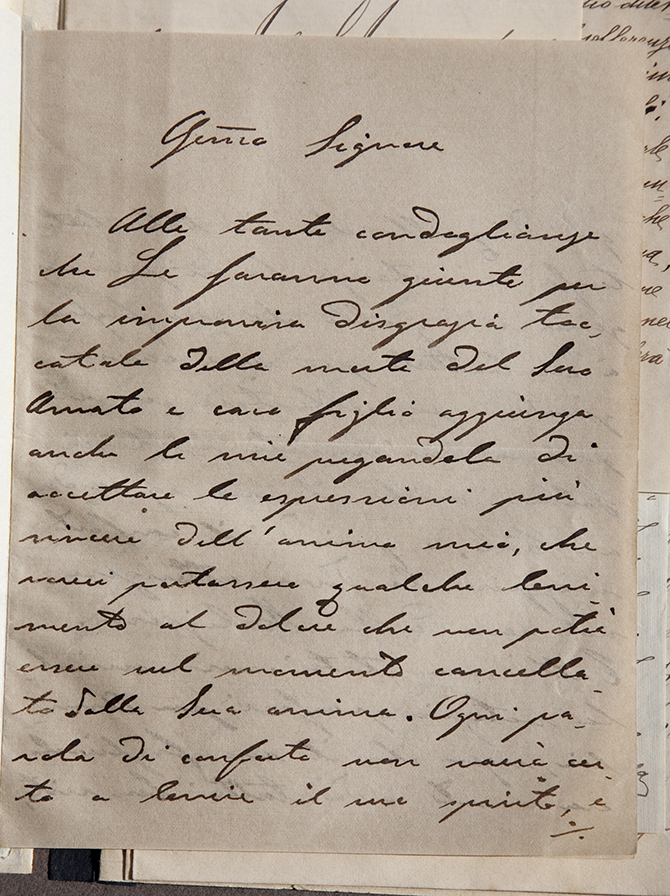 Gen̅ma Signora
Alle tante condoglianze
che Le saranno giunte per
la improvvisa disgrazia toc,
catale della morte del Suo
Amato e caro figlio aggiunga
anche le mie pregandola di
accettare le espressioni più
sincere dell'anima mia, che
vorrei portassero qualche leni-
mento al dolore che non potrà
essere nel momento cancella-
to dalla Sua anima. Ogni pa-
rola di conforto non varrà cer-
to a lenire il suo spirito, e